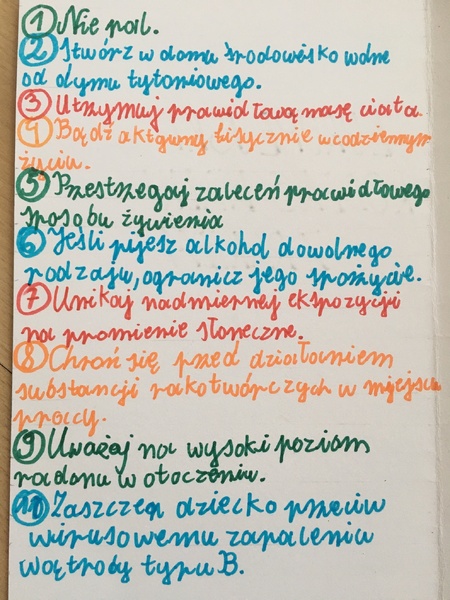 1 Nie pal.
2 Stwórz w domu środowisko wolne
od dymu tytoniowego.
3 Utrzymuj prawidłową masę ciała
4 Bądź aktywny fizycznie w codziennym
życiu.
5 Przestrzegaj zaleceń prawidłowego
sposobu żywienia
6 Jeśli pijesz alkohol dowolnego
rodzaju, ogranicz jego spożycie.
7 Unikaj nadmiernej ekspozycji
na promienie słoneczne.
8 Chroń się przed działaniem
substancji rakotwórczych w miejscu
pracy.
9 Uważaj na wysoki poziom
radonu w otoczeniu.
11 Zaszczep dziecko przeciw
wirusowemu zapaleniu
wątroby typu B.